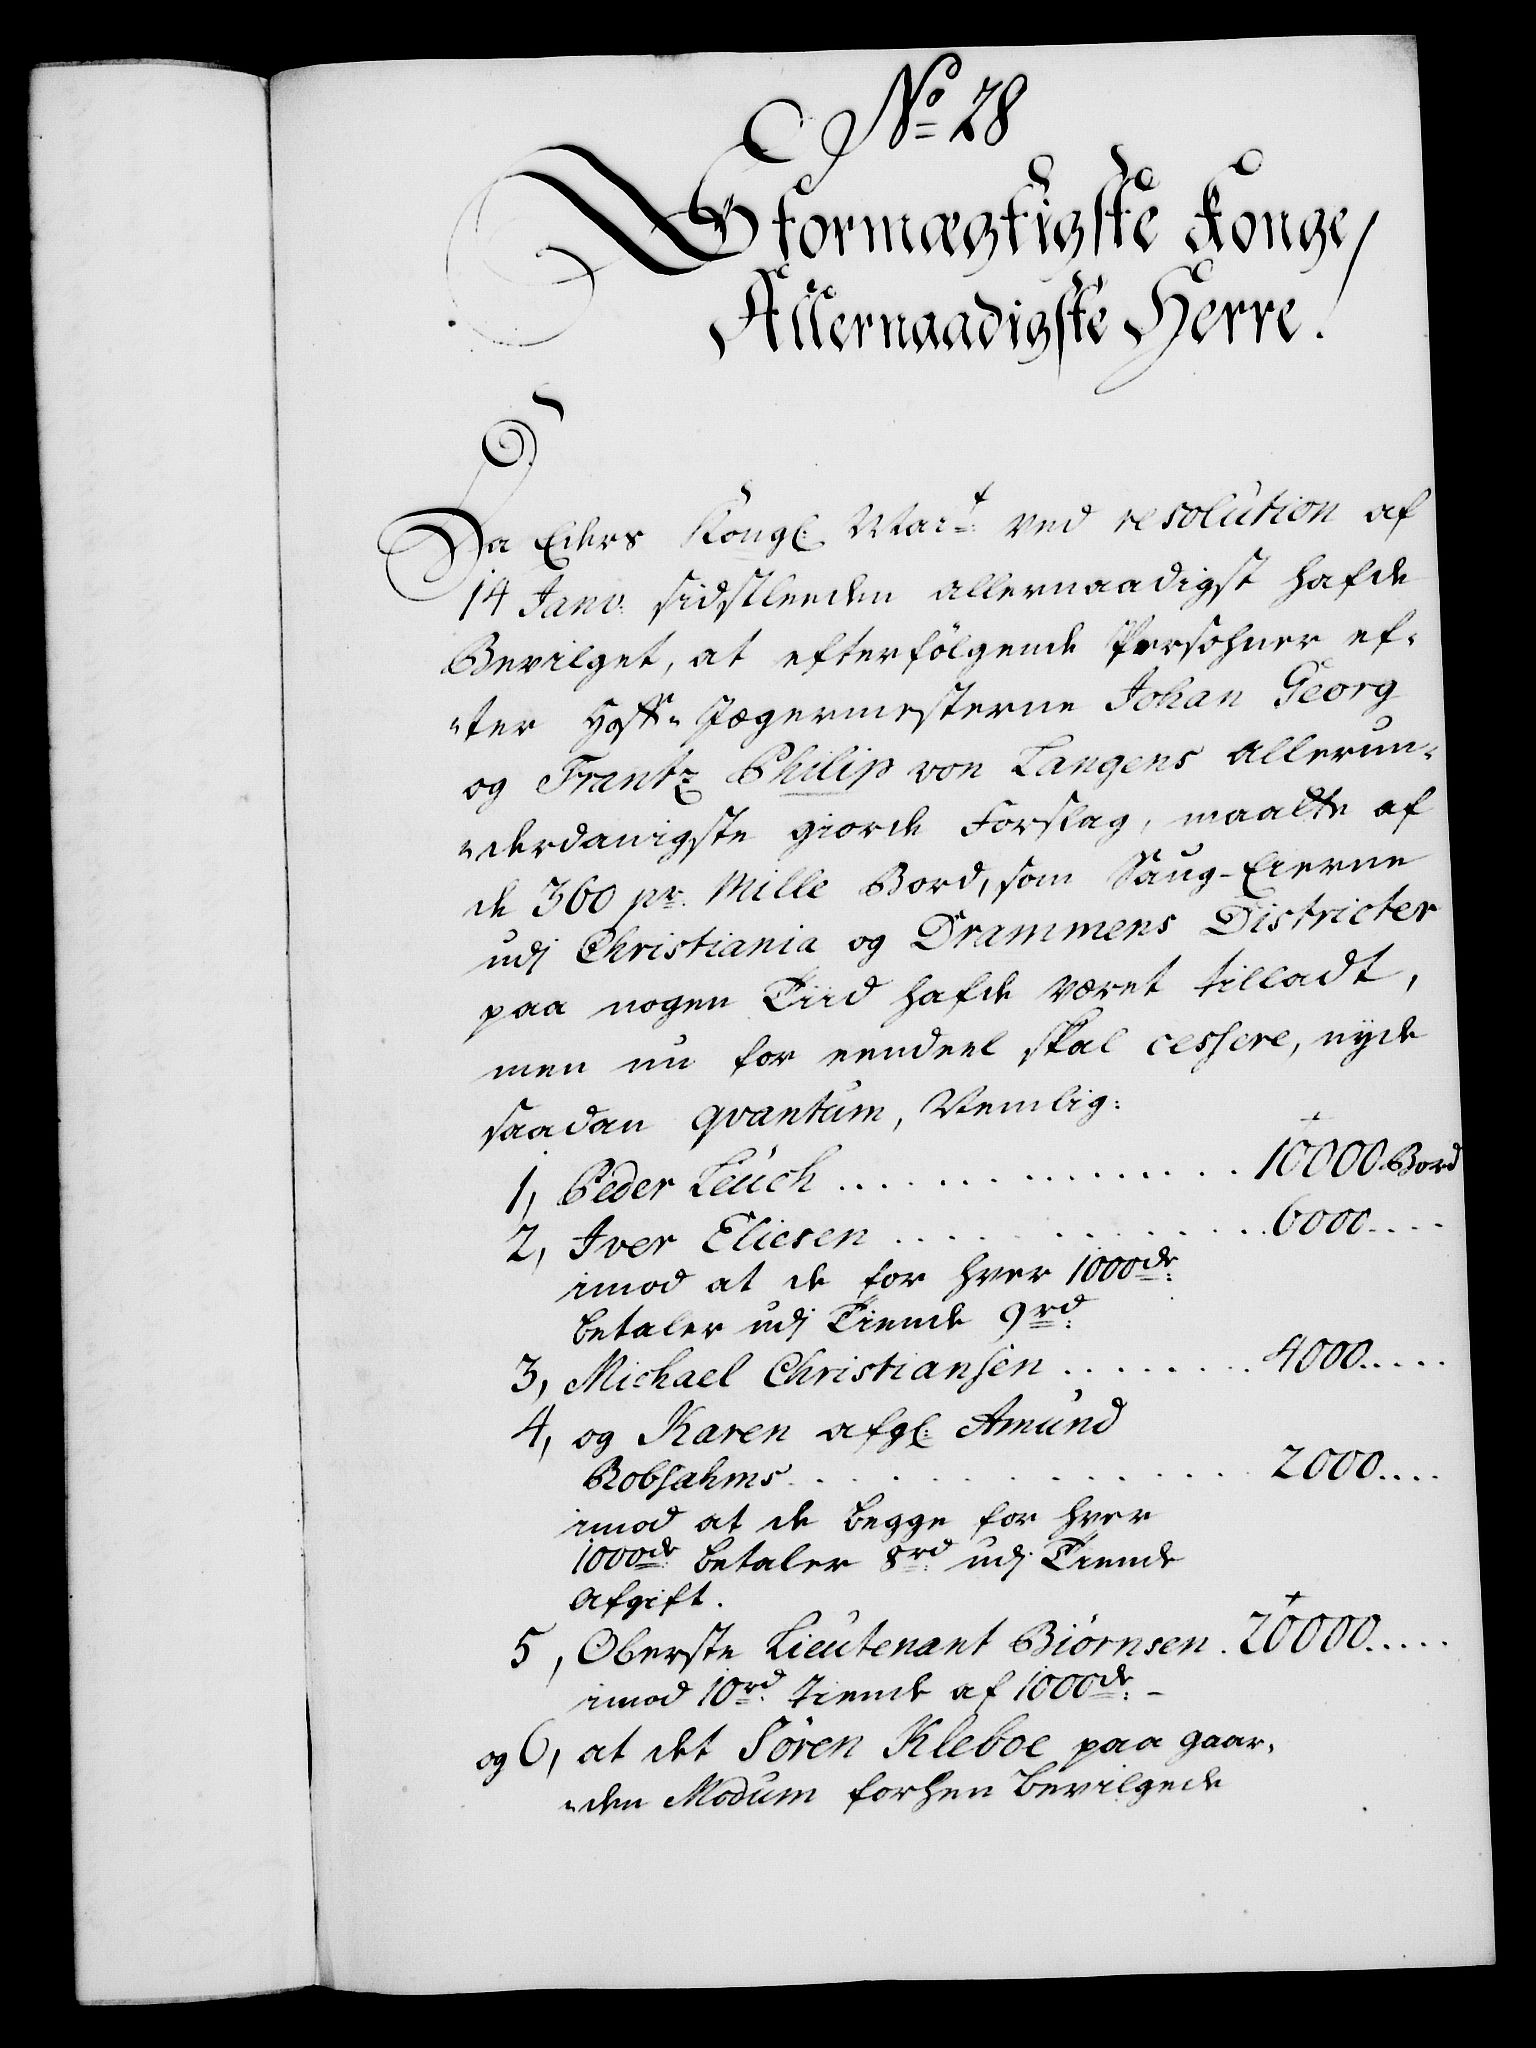 No 28
Stormægtigste Konge/
Allernaadigste Herre.
Da Eders Kongl: Mai:t ved resolution af
14 Janv: sidstleeden allernaadigst hafde
Bevilget, at efterfölgende Persohner ef-
ter Hoff-Jægermesterne Johan Georg
og Frantz Philip von Langens allerun-
derdanigste giorde Forslag, maatte af
de 360 pr. Mille Bord, som Saug-Eierne
udj Christiania og Drammens Districter
paa nogen Tiid hafde været tilladt,
men nu for eendeel skal cessere, nyde
saadan qvantum, Nemlig:
1, Peder Leuch . . . . . . . . . . 10000 Bord
2, Iver Eliesen . . . . . . . . . . 6000....
imod at de for hver 1000de:
betaler udj Tiende 9rd:
3, Michael Christiansen . . . . . . . . 4000.....
4, og Karen afgl: Amund
Robsahms . . . . . . . . . . 2000....
imod at de begge for hver
1000de: betaler 8rd: udj Tiende
Afgift.
5, Oberste Lieutenant Biörnsen . 20000.....
imod 10rd: Tiende af 1000de: -
og 6, at det Sören Kleboe paa gaar-
den Modum forhen bevilgede